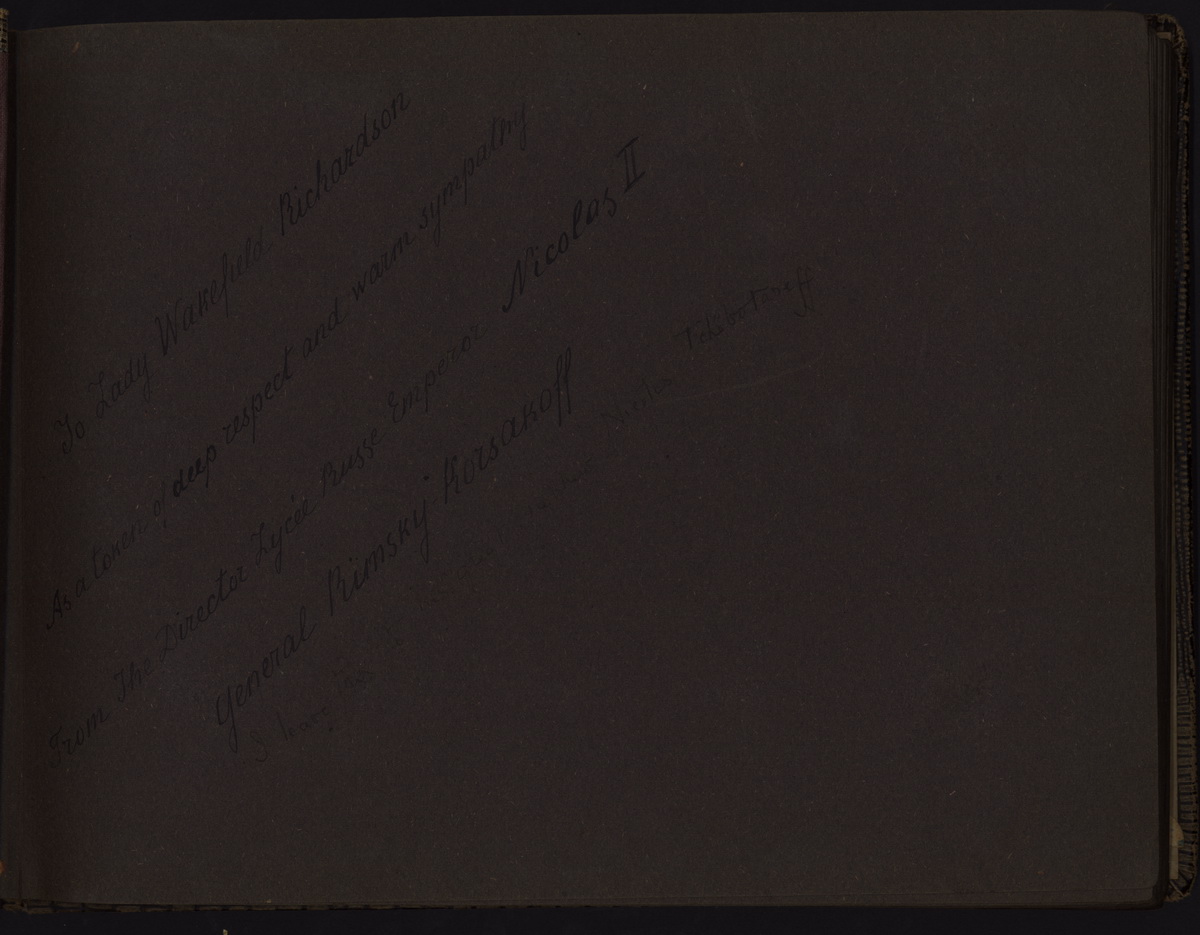 To Lady Wakefield Richardson
As a token of deep respect and warm sympathy
From The Director Lycée Russe Emperor Nicolas II
General Rimsky Korsakoff
Nicolas Tchebotareff